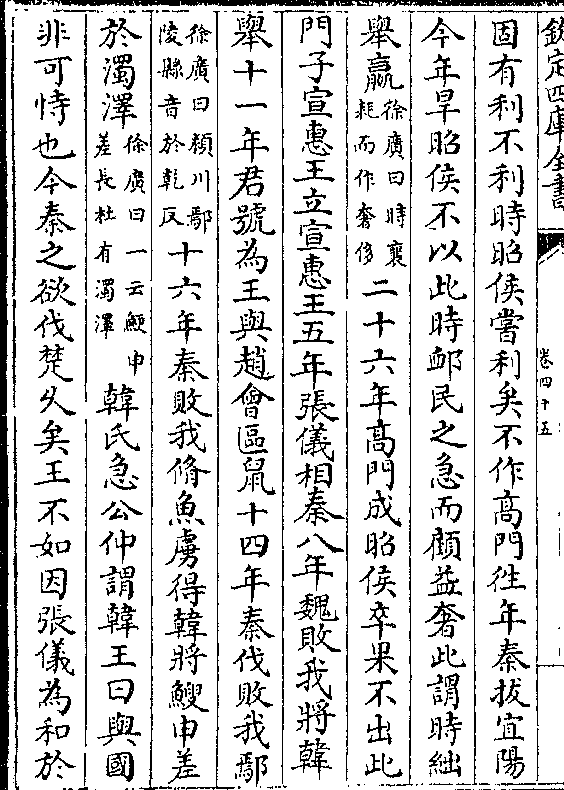 欽定四庫全書
卷四十五
固有利不利時昭侯嘗利矣不作高門徃年秦拔宜陽
今年旱昭侯不以此時䘏民之急而顧益奢此謂時絀
舉贏徐廣曰時衰耗而作奢侈二十六年高門成昭侯卒果不出此
門子宣惠王立宣惠王五年張儀相秦八年魏敗我將韓
舉十一年君號為王與趙會區鼠十四年秦伐敗我鄢
徐廣曰潁川鄢陵縣音於乾反十六年秦敗我脩魚虜得韓將鰒申差
於濁澤徐廣曰一云鯁申差長杜有濁澤韓氏急公仲謂韓王曰與國
非可恃也今秦之欲伐楚久矣王不如因張儀為和於